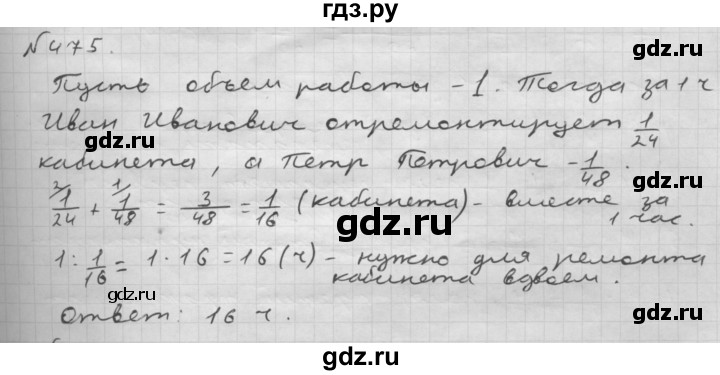 гдз.ру
№475.
Пусть объем работы - 1. Тогда за 1 ч
Иван Иванович отремонтирует 1/24
кабинета, а Петр Петрович - 1/48.
1/24 (2) + 1/48 (1) = 3/48 = 1/16 (кабинета) - вместе за 1 час.
1 : 1/16 = 1 · 16 = 16 (ч) - нужно для ремонта
кабинета вдвоем.
Ответ: 16 ч.
gdz.ru
gdz.ru
gdz.ru
gdz.ru
gdz.ru
gdz.ru
gdz.ru
gdz.ru